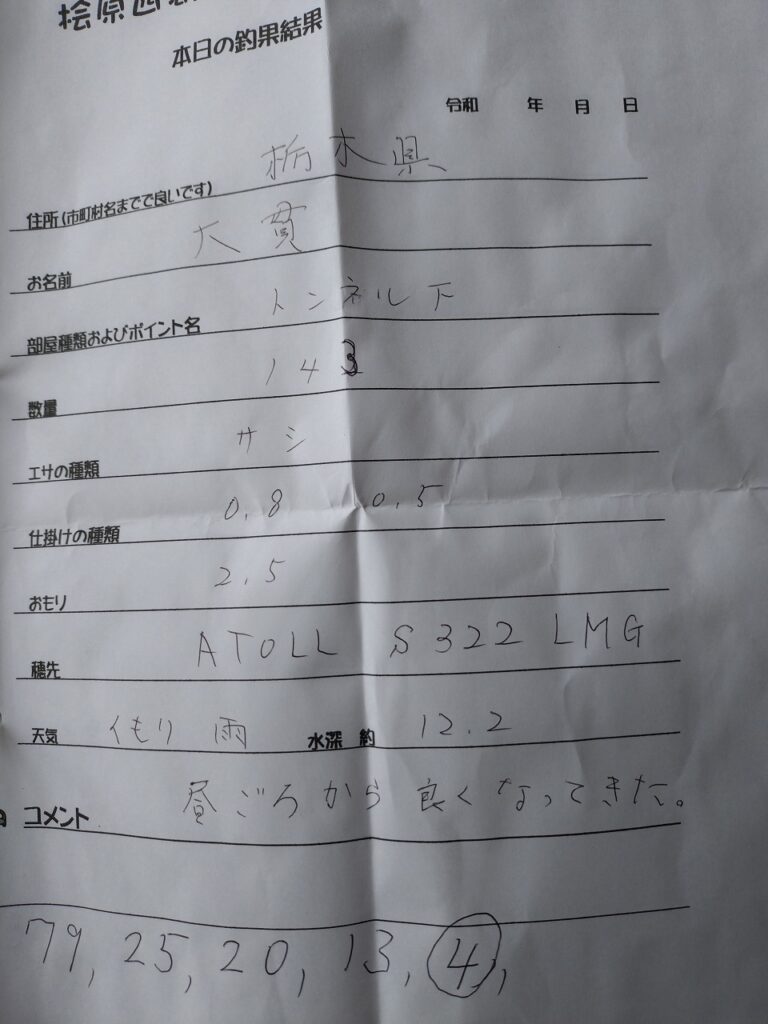 桧原西
本日の釣果結果
令和 年 月 日
住所(市町村名までで良いです) 栃木県
お名前 大貫
部屋種類およびポイント名 トンネル下
数量 143
エサの種類 サシ
仕掛けの種類 0.8 0.5
おもり 2.5
穂先 ATOLL S322 LMG
天気 くもり 雨 水深 約 12.2
コメント 昼ごろから良くなってきた。
79, 25, 20, 13, 4,